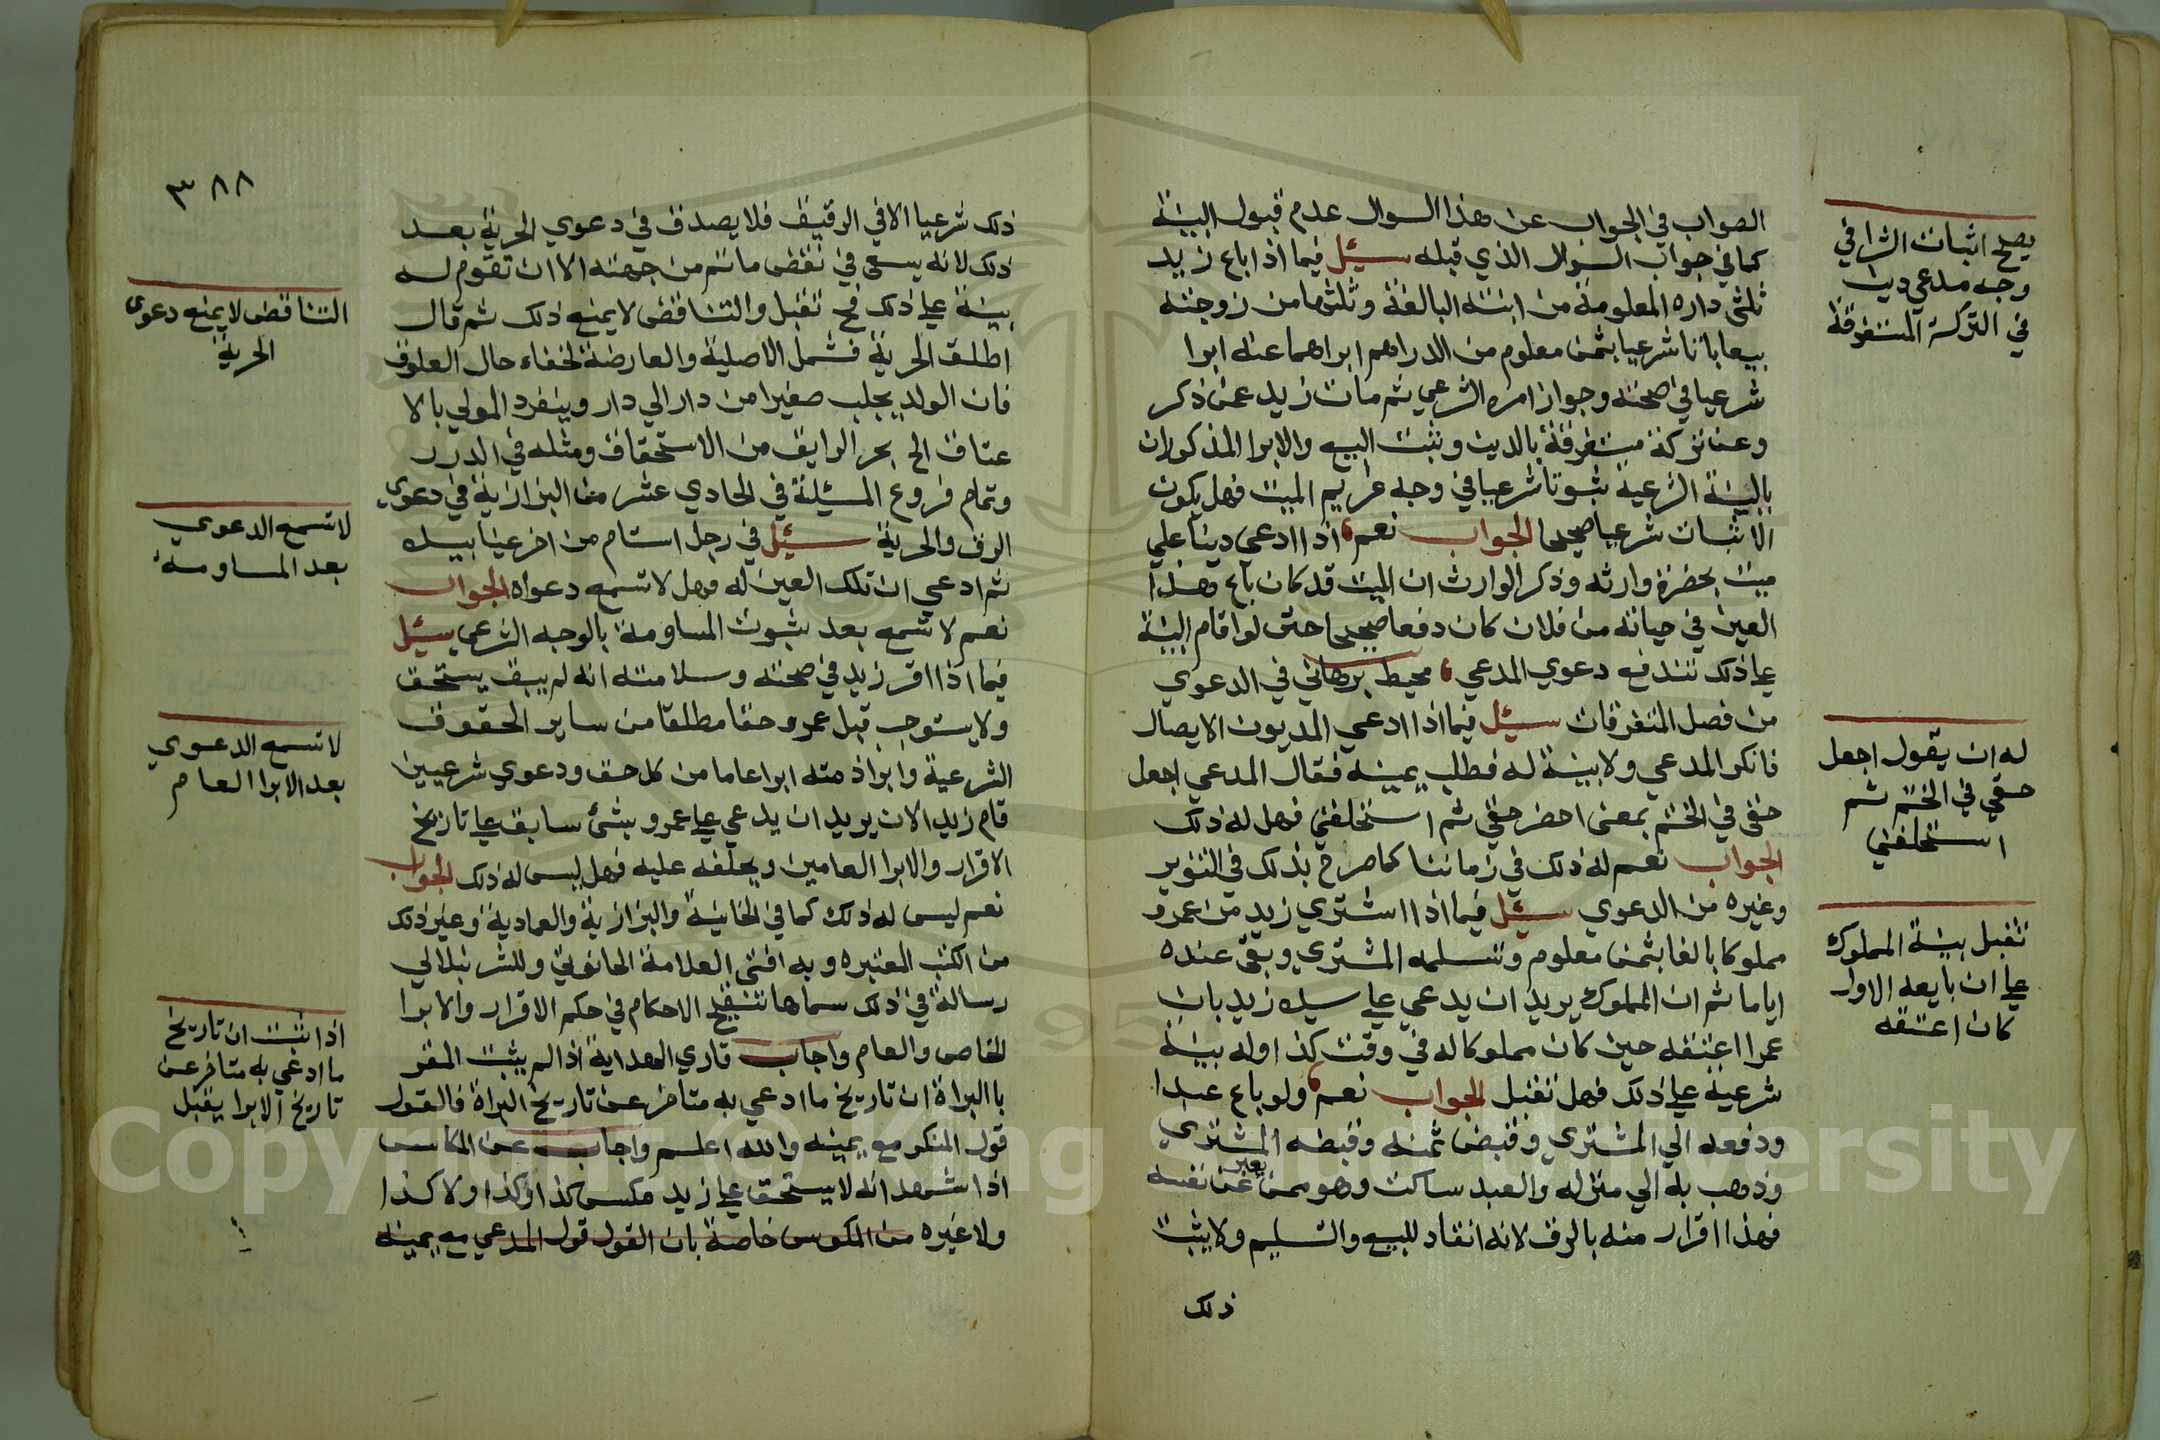 الصواب في الجواب عن هذا السوال عدم قبول البينة
كما في جواب السوال الذي قبله سئيل فيما اذا باع زيد
ثلثي داره المعلومة من ابنته البالغة وثلثها من زوجته
بيعا باتا شرعيا بثمن معلوم من الدراهم ابراهما عنه ابرا
شرعيا في صحته وجواز امره الشرعي ثم مات زيد عمن ذكر
وعن تركة مستغرقة بالدين وثبت البيع والابرا المذكوران
بالبينة الشرعية ثبوتا شرعيا في وجه غريم الميت فهل يكون
الاثبات شرعيا صحيحا الجواب نعم اذا ادعى دينا علي
ميت بحضرة وارثه وذكر الوارث ان الميت قد كان باع هذا
العين في حياته من فلان كان دفعا صحيحا حتى لو اقام البينة
علي ذلك تندفع دعوي المدعي محيط برهاني في الدعوي
من فصل المتفرقات سئيل فيما اذا ادعي المديون الايصال
فانكر المدعي ولا بينة له فطلب يمينه فقال المدعي اجعل
حقي في الختم بمعنى احضر حقي ثم استحلفني فهل له ذلك
الجواب نعم له ذلك في زماننا كما صرح بذلك في التنوير
وغيره من الدعوي سئيل فيما اذا اشتري زيد من عمرو
مملوكا بالغا بثمن معلوم وتسلمه المشتري وبقي عنده
اياما ثم ان المملوك يريد ان يدعي علي سيده زيد بان
عمرا اعتقه حين كان مملوكا له في وقت كذا وله بينة
شرعية علي ذلك فهل تقبل الجواب نعم ولو باع عبدا
ودفعه الي المشتري وقبض ثمنه وقبضه المشتري
وذهب به الي منزله والعبد ساكت وهو ممن يعبر عن نفسه
فهذا اقرار منه بالرق لانه انقاد للبيع والتسليم ولا يثبت
ذلك
يصح اثبات الشرا في
وجه مدعي دين
في التركة المستغرقة
له ان يقول اجعل
حقي في الختم ثم
استحلفني
تقبل بينة المملوك
علي ان بايعه الاول
كان اعتقه
٣٨٨
ذلك شرعيا الا في الرقيق فلا يصدق في دعوي الحرية بعد
ذلك لانه يسعى في نقض ما تم من جهته الا ان تقوم له
بينة علي ذلك فح تقبل والتناقض لا يمنع ذلك ثم قال
اطلق الحرية فشمل الاصلية والعارضة لخفاء حال العلوق
فان الولد يجلب صغيرا من دار الي دار وينفرد المولي بالا
عتاق الخ بحر الرايق من الاستحقاق ومثله في الدرر
وتمام فروع المسئلة في الحادي عشر من البزازية في دعوي
الرق والحرية سئيل في رجل استام من اخر عينا بيده
ثم ادعي ان تلك العين له فهل لا تسمع دعواه الجواب
نعم لا تسمع بعد ثبوت المساومة بالوجه الشرعي سئيل
فيما اذا اقر زيد في صحته وسلامته انه لم يبق يستحق
ولا يستوجب قبل عمرو حقا مطلقا من ساير الحقوق
الشرعية وابرا ذمته ابرا عاما من كل حق ودعوي شرعيين
قام زيد الان يريد ان يدعي علي عمرو بشئ سابق علي تاريخ
الاقرار والابرا العامين ويحلفه عليه فهل ليس له ذلك الجواب
نعم ليس له ذلك كما في الخانية والبزازية والعمادية وغير ذلك
من الكتب المعتبره وبه افتى العلامة الحانوتي وللشرنبلالي
رسالة في ذلك سماها تنقيح الاحكام في حكم الاقرار والابرا
الخاص والعام واجاب قاري الهداية اذا لم يثبت المقر
باالبراة ان تاريخ ما ادعي به متاخر عن تاريخ البراة فالقول
قول المنكر مع يمينه والله اعلم واجاب عن المكاس
اذا شهد انه لا يستحق علي زيد مكس كذا وكذا ولا كذا
ولا غيره من المكوس خاصة بان القول قول المدعي مع يمينه
التناقض لا يمنع دعوى
الحرية
لا تسمع الدعوي
بعد المساومة
لا تسمع الدعوي
بعد الابرا العام
اذا ثبت ان تاريخ
ما ادعي به متاخر عن
تاريخ الابرا يقبل
Copyright © King Saud University